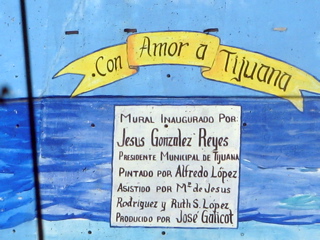 Con Amor a Tijuana
MURAL INAUGURADO POR:
Jesus Gonzalez Reyes
PRESIDENTE MUNICIPAL DE TIJUANA
PINTADO POR Alfredo López
ASISTIDO POR Mª de Jesus
Rodriguez y Ruth S. López
PRODUCIDO POR José Galicot